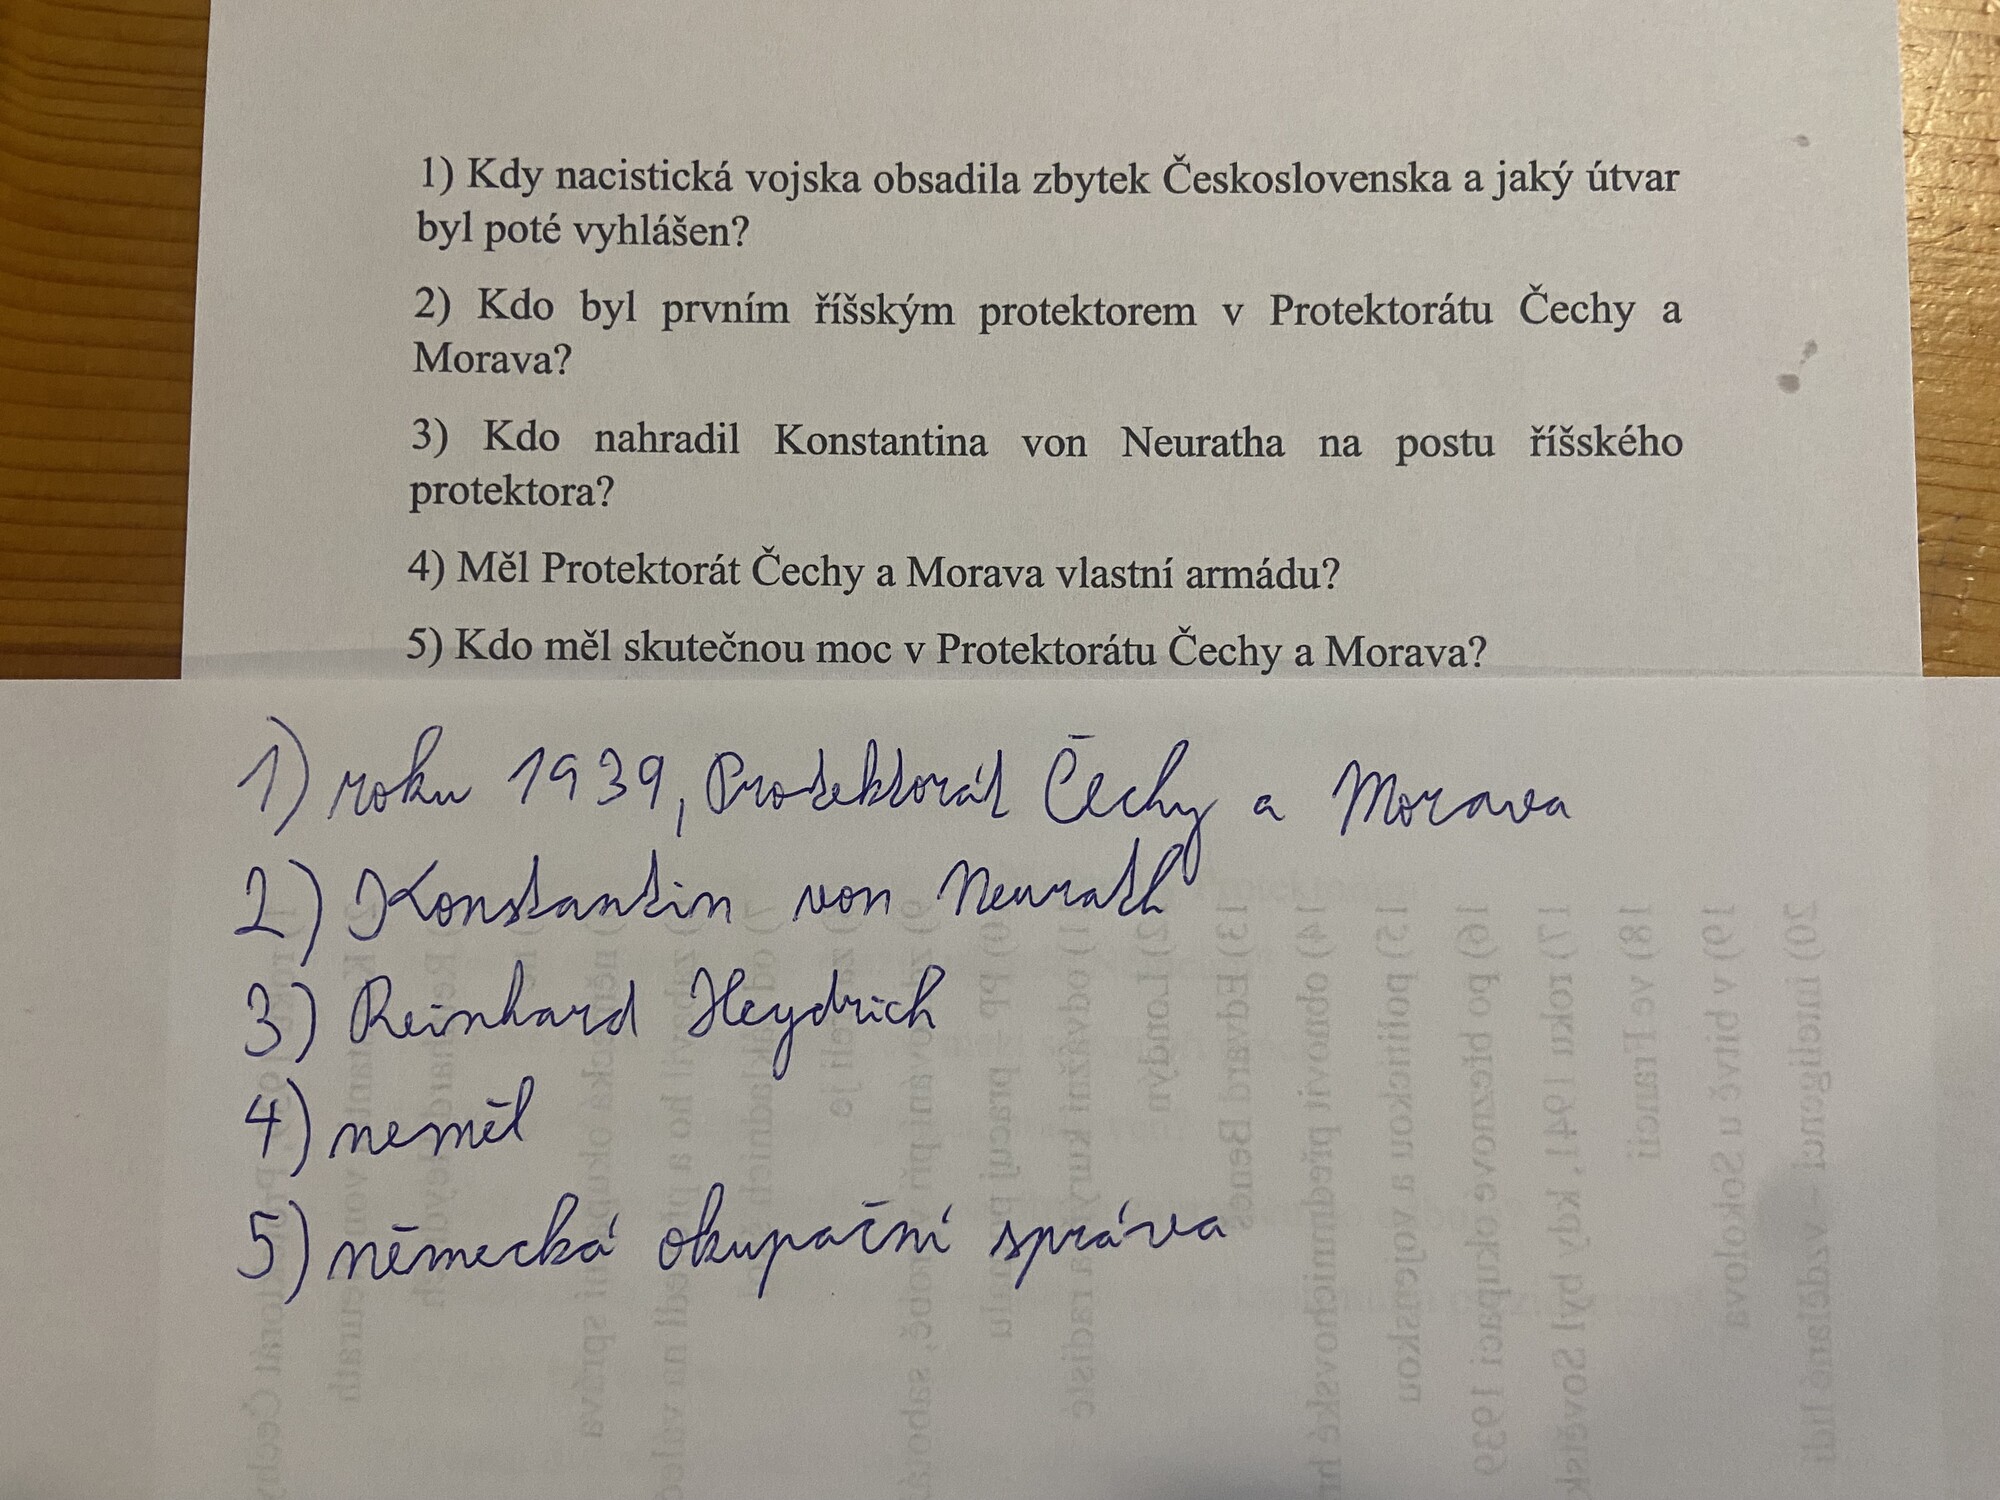 1) Kdy nacistická vojska obsadila zbytek Československa a jaký útvar
byl poté vyhlášen?
2) Kdo byl prvním říšským protektorem v Protektorátu Čechy a
Morava?
3) Kdo nahradil Konstantina von Neuratha na postu říšského
protektora?
4) Měl Protektorát Čechy a Morava vlastní armádu?
5) Kdo měl skutečnou moc v Protektorátu Čechy a Morava?
1) roku 1939, Protektorát Čechy a Morava
2) Konstantin von Neurath
3) Reinhard Heydrich
4) neměl
5) německá okupační správa